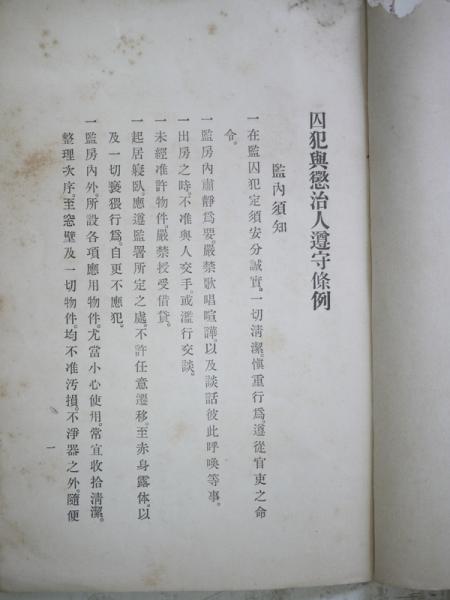 囚犯與懲治人遵守條例
監內須知
一在監囚犯定須安分誠實。一切清潔。愼重行爲。遵從官吏之命
令。
一監房內肅靜爲要。嚴禁歌唱喧譁。以及談話彼此呼喚等事。
一出房之時。不准與人交手。或濫行交談。
一未經准許物件。嚴禁授受借貸。
一起居寢臥。應遵監署所定之處。不許任意遷移。至赤身露体。以
及一切褻猥行爲。自更不應犯。
一監房內外所設各項應用物件。尤當小心使用。常宜收拾清潔。
整理次序。至窓壁及一切物件。均不准汚損。不淨器之外。隨便
一